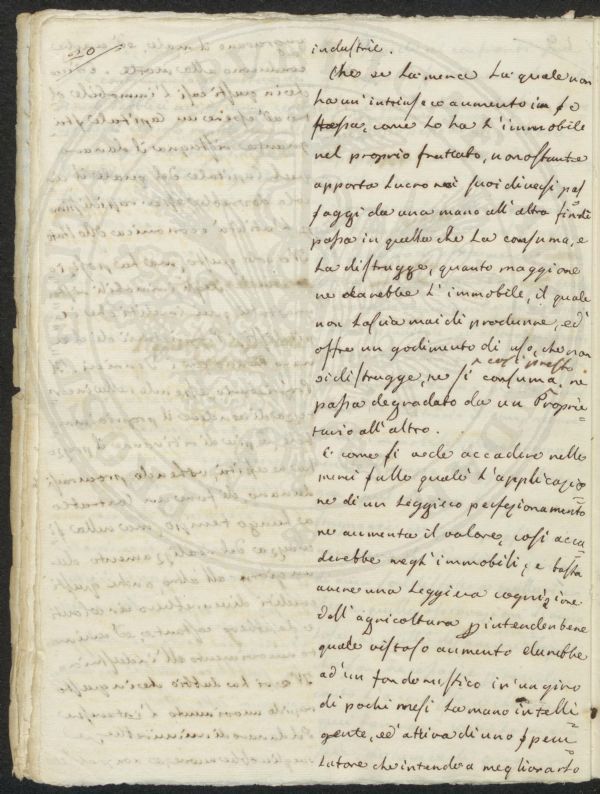 20
industrie.
Che se la merce la quale non
ha un' intrinseco aumento in se
stessa, come lo ha l' immobile
nel proprio fruttato, nonostante
apporta lucro nei suoi diversi pas=
saggi da una mano all' altra finché
passa in quella che la consuma, e
la distrugge, quanto maggiore
ne darebbe l' immobile, il quale
non lascia mai di produrre, ed'
offre un godimento di uso, che non
si distrugge, ne si consuma così presto, ne
passa degradato da un Proprie=
tario all' altro.
E come si vede accadere nelle
merci sulle quali l' applicazio=
ne di un leggiero perfezionamento
ne aumenta il valore, così acca=
derebbe negl' immobili; e basta
avere una leggiera cognizione
dell' agricoltura per intender bene
quale vistoso aumento darebbe
ad' un fondo rustico in' un giro
di pochi mesi la mano intelli=
gente, ed' attiva di uno specu=
latore che intende a migliorarlo